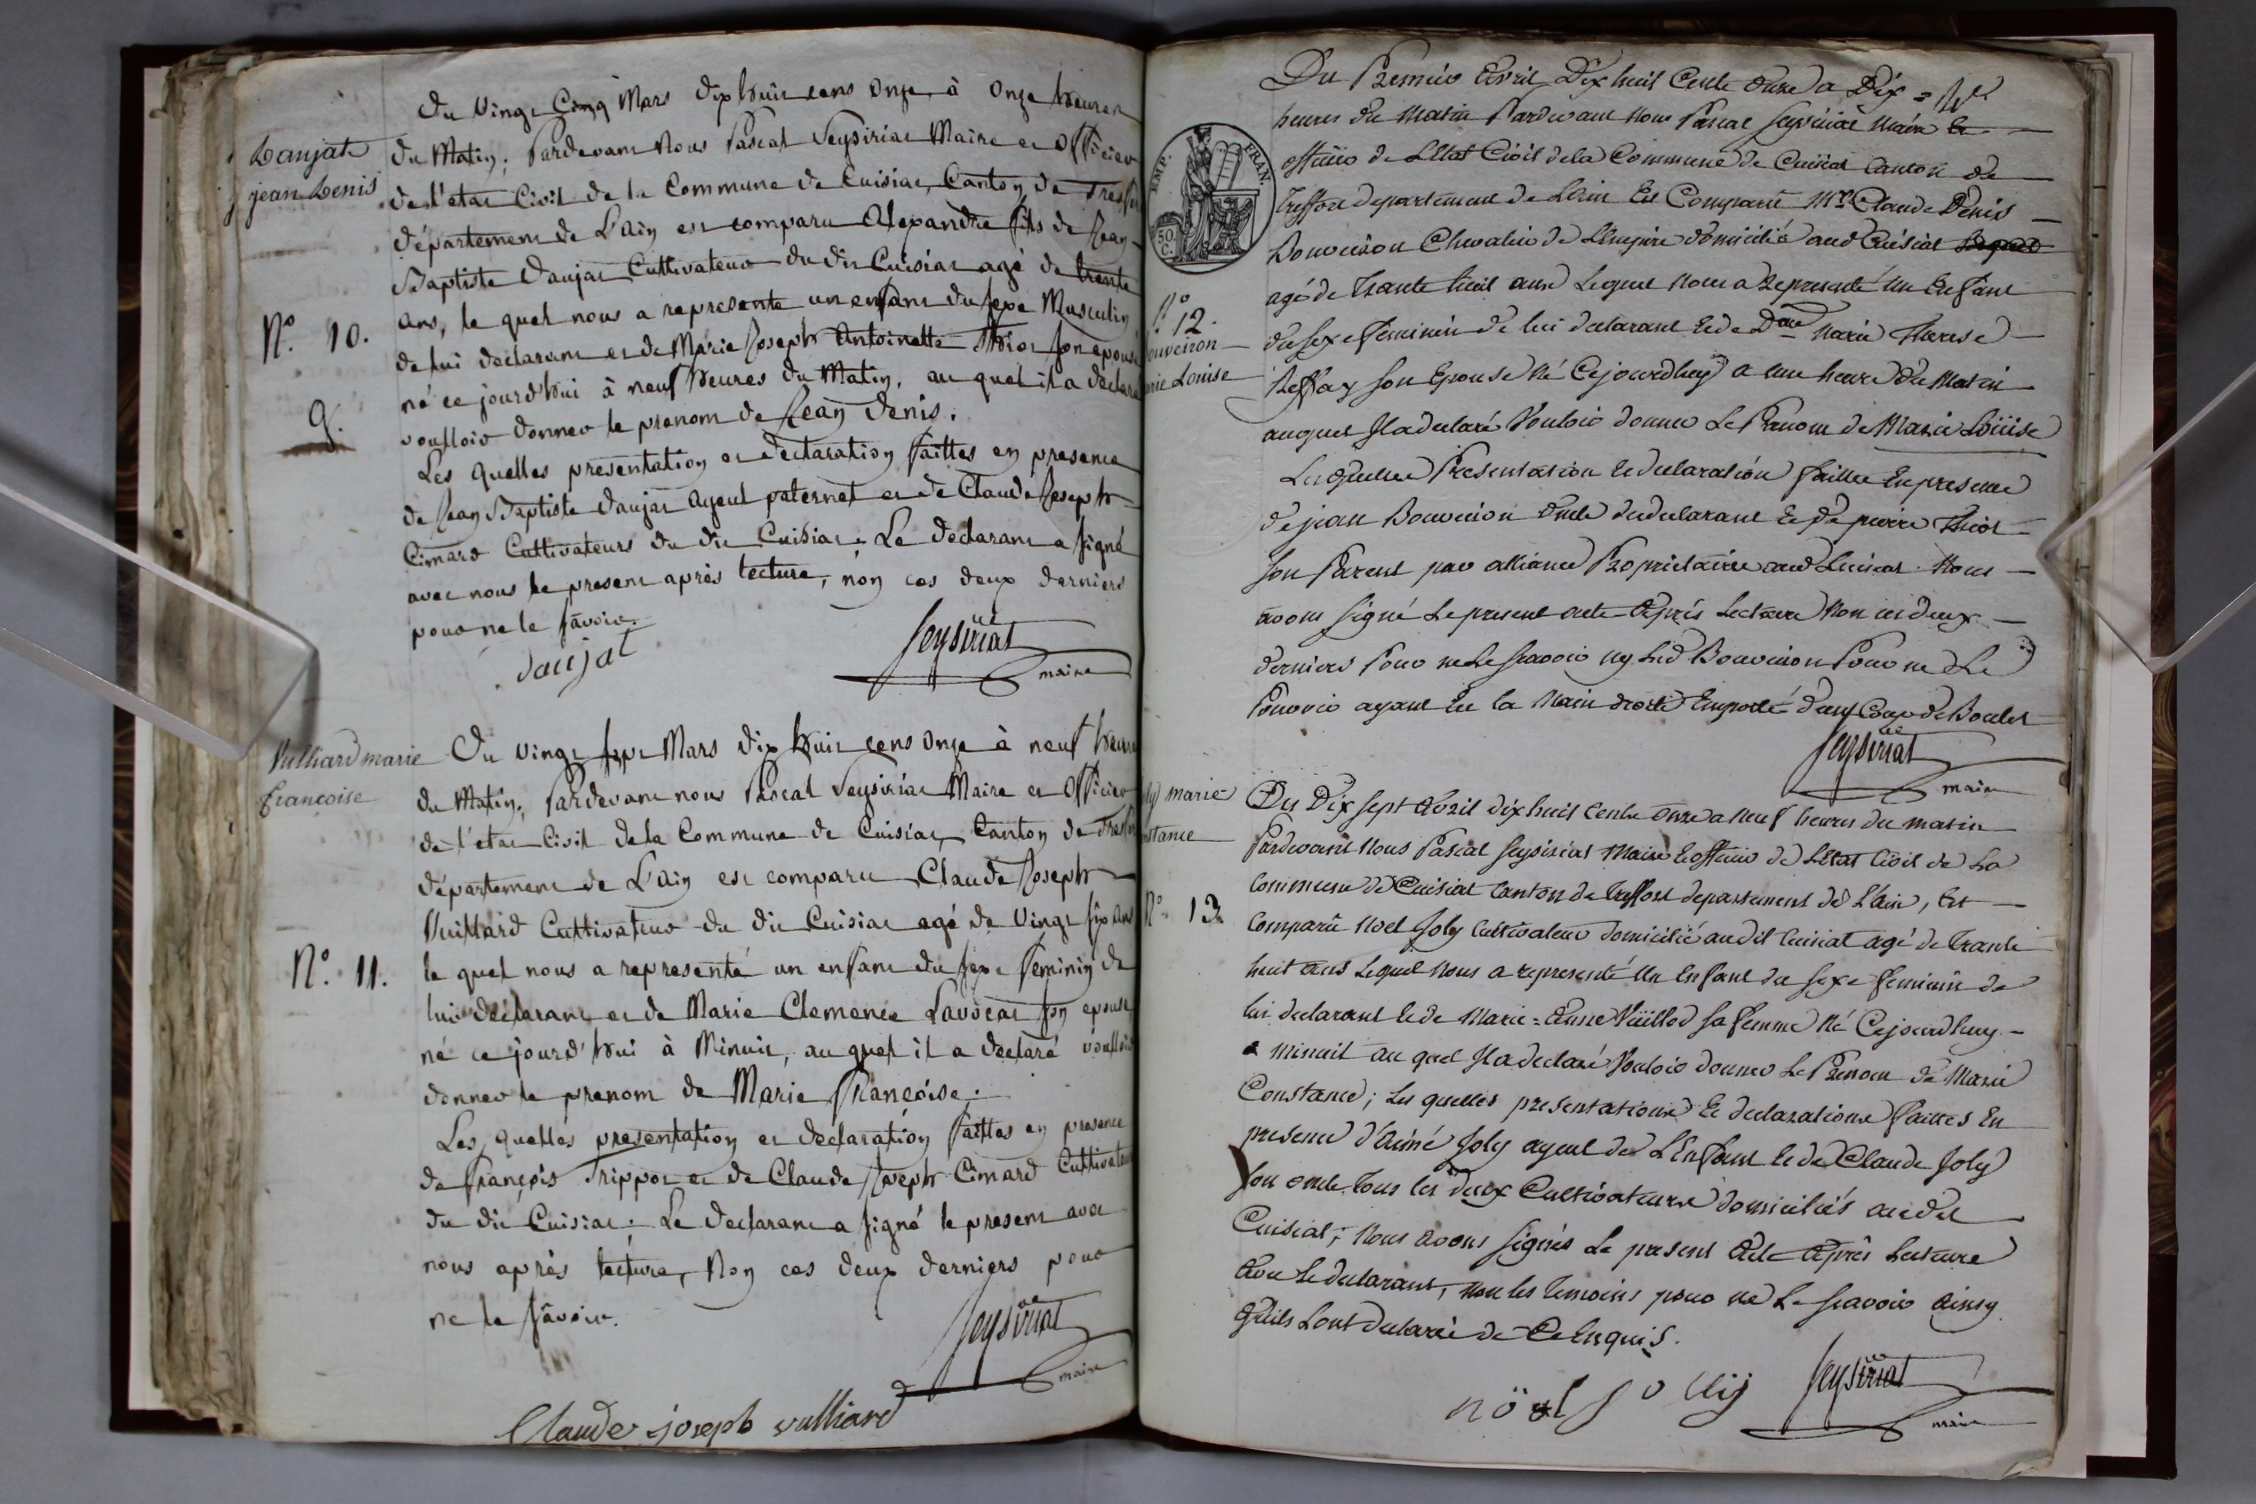 Danjat
jean Denis
N.º 10.
g.
Du vingt Cinq Mars dix huit cens onze à onze heures
du Matin, Pardevant Nous Pascal Seysiriat Maire et Officier
de l'etat Civil de la Commune de Cuisiat, Canton de Treffort
département de L'Ain est comparu Alexandre fils de Jean
Baptiste Daujat Cultivateur du dit Cuisiat agé de trente
ans, le quel nous a representé un enfant du sexe Masculin
de lui declarant et de Marie Joseph Antoinette Thior son epouse
né ce jourd'hui à neuf heures du Matin, au quel il a declaré
vousloir donner le prenom de Jean Denis.
Les quelles presentation et declaration faittes en presence
de Jean Baptiste Daujat ayeul paternel et de Claude Joseph
Cimard Cultivateurs du dit Cuisiat. Le declarant a signé
avec nous le present après lecture, non ces deux derniers
pour ne le sávoir.
daujat
Seysiriat
maire
Vulliard marie
françoise
N.º 11.
Du vingt sept Mars dix huit cens onze à neuf heures
du Matin, Pardevant nous Pascal Seysiriat Maire et Officier
de l'etat Civil de la Commune de Cuisiat, Canton de Treffort
département de L'Ain est comparu Claude Joseph
Vuillard Cultivateur du dit Cuisiat agé de vingt six ans
le quel nous a representé un enfant du sexe feminin de
lui déclarant et de Marie Clemence Lavocat son epouse
né ce jourd'hui à Minuit, au quel il a declaré vousloir
donner le prenom de Marie Françoise.
Les quelles presentation et déclaration faittes en presence
de françois Trippoz et de Claude Joseph Cimard Cultivateurs
du dit Cuisiat. Le declarant a signé le present avec
nous après lecture, Non ces deux derniers pour
ne le sávoir.
Seysiriat
maire
Claude joseph vulliard
EMP. FRAN.
50
C.
N.º 12.
ouveiron
rie Louise
Du Premier Avril Dix huit Cents onze a Dix =
heures du Matin Pardevant Nous Pascal Seysiriat Maire Et
officier de L'Etat Civil de la Commune de Cuisiat Canton de
Treffort departement de L'ain Est Comparu Mr. Claude Denis
Bouveiron Chevalier de L'Empire domicilié aud Cuisiat
agé de Trante huit ans Lequel nous a Representé un Enfant
du sexe feminin de lui declarant Et de Dame Marie Therese
Reffay son Epouse Né Cejourdhuy a une heure du Matin
auquel Il a declaré Vouloir donner Le Prenom de Marie Loüise
Lesquelles Presentation Et declaration faittes En presence
de jean Bouveiron oncle du declarant Et de pierre Thior
son Parent par alliance Proprietaires aud Cuisiat. Nous
avons signé Le present acte Après Lecture Non ces deux
derniers Pour ne Le Scavoir ny led Bouveiron Pour ne Le
Pouvoir ayant Eu la Main droite Emporté d'un Coup de Boulet
Seysiriat
maire
ly marie
nstance
N.º 13.
Du Dix sept Avril dix huit Cents onze a Neuf heures du matin
Pardevant Nous Pascal Seysiriat Maire Et officier de L'Etat Civil de La
Commune de Cuisiat Canton de Treffort departement de L'ain, Est
Comparü Noel Joly Cultivateur domicilié audit Cuisiat agé de Trante
huit ans Lequel Nous a representé Un Enfant du sexe feminin de
lui declarant Et de Marie = Anne Vüillod sa femme Né Cejourdhuy
a minuit au quel Il a declaré Vouloir donner Le Prenom de Marie
Constance; Les quelles presentations Et declarations faittes En
presence d'Aimé Joly ayeul de L'Enfant Et de Claude Joly
son oncle Tous les deux Cultivateurs domiciliés audit
Cuisiat; Nous avons signés Le present Acte Après Lecture
Avec Le declarant, non les Temoins pour ne Le Scavoir Ainsy
qu'ils Lont declaré de Ce Enquis.
nöel jo llij
Seysiriat
maire